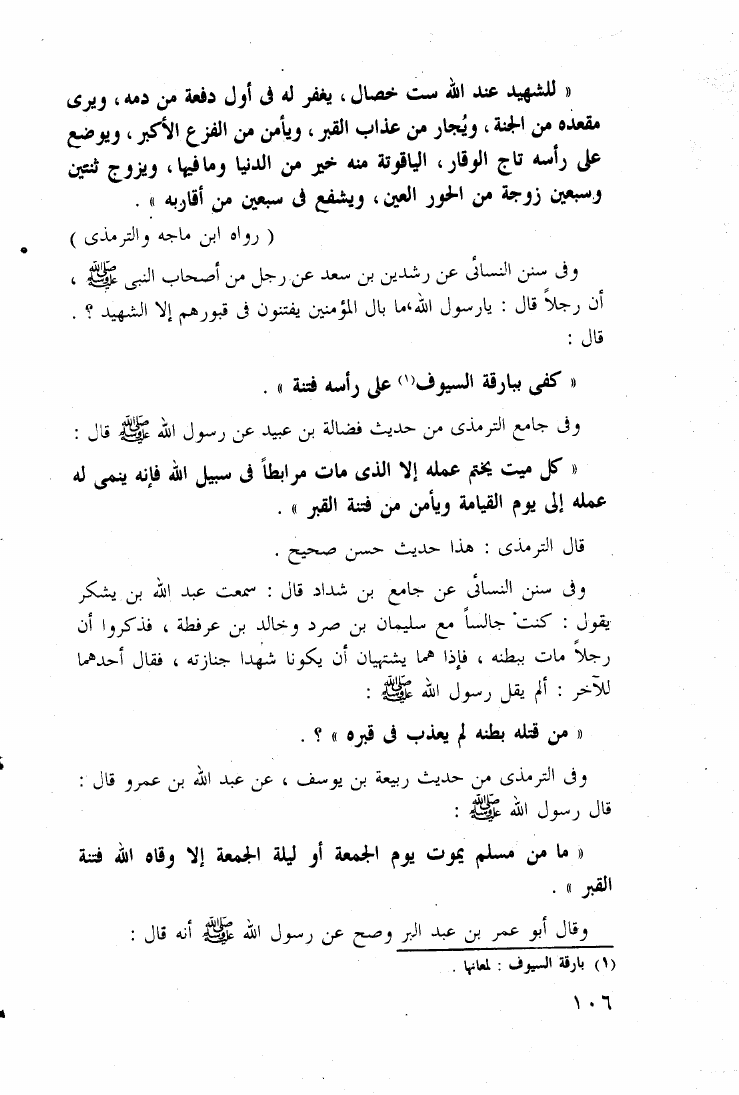 « للشهيد عند الله ست خصال ، يغفر له فى أول دفعة من دمه ، ويرى
مقعده من الجنة ، ويُجار من عذاب القبر ، ويأمن من الفزع الأكبر ، ويوضع
على رأسه تاج الوقار ، الياقوتة منه خير من الدنيا ومافيها ، ويزوج ثنتين
وسبعين زوجة من الحور العين ، ويشفع فى سبعين من أقاربه » .
( رواه ابن ماجه والترمذى )
وفى سنن النسائى عن رشدين بن سعد عن رجل من أصحاب النبى ﷺ ،
أن رجلاً قال : يارسول الله ، ما بال المؤمنين يفتنون فى قبورهم إلا الشهيد ؟ .
قال :
« كفى ببارقة السيوف(١) على رأسه فتنة » .
وفى جامع الترمذى من حديث فضالة بن عبيد عن رسول الله ﷺ قال :
« كل ميت يختم عمله إلا الذى مات مرابطاً فى سبيل الله فإنه ينمى له
عمله إلى يوم القيامة ويأمن من فتنة القبر » .
قال الترمذى : هذا حديث حسن صحيح .
وفى سنن النسائى عن جامع بن شداد قال : سمعت عبد الله بن يشكر
يقول : كنت جالساً مع سليمان بن صرد وخالد بن عرفطة ، فذكروا أن
رجلاً مات ببطنه ، فإذا هما يشتهيان أن يكونا شهدا جنازته ، فقال أحدهما
للآخر : ألم يقل رسول الله ﷺ :
« من قتله بطنه لم يعذب فى قبره » ؟ .
وفى الترمذى من حديث ربيعة بن يوسف ، عن عبد الله بن عمرو قال :
قال رسول الله ﷺ :
« ما من مسلم يموت يوم الجمعة أو ليلة الجمعة إلا وقاه الله فتنة
القبر » .
وقال أبو عمر بن عبد البر وصح عن رسول الله ﷺ أنه قال :
(١) بارقة السيوف : لمعانها .
١٠٦